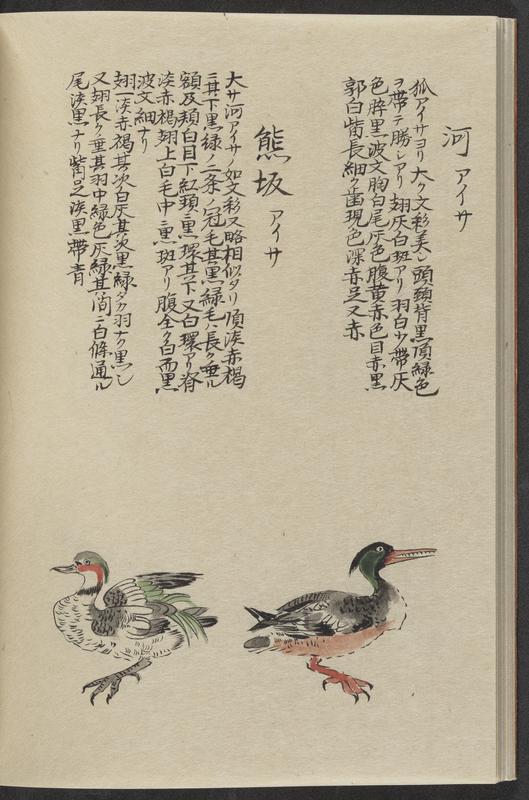 河アイサ
狐アイサヨリ大ク文彩美シ頭頚背黒頂緑色
ヲ帯テ勝シアリ翅灰白斑アリ羽白少帯灰
色脺黒波文胸白尾灰色腹黄赤色目赤黒
郭白觜長細ク歯現色深赤足又赤
熊坂アイサ
大サ河アイサノ如文彩又略相似タリ頂淡赤褐
ニ其下黒緑ノ二条ノ冠毛其黒緑毛ハ長ク垂ル
額及頬白目下紅頚ニ黒環其下又白環アリ脊
淡赤褐翅上白毛中ニ黒斑アリ腹全ク白而黒
波文細ナリ
翅一淡赤褐其次白灰其次黒緑ダカ羽ナク黒シ
又翅長ク垂其羽中緑色灰緑其間ニ白條通ル
尾淡黒ナリ觜足淡黒帯青